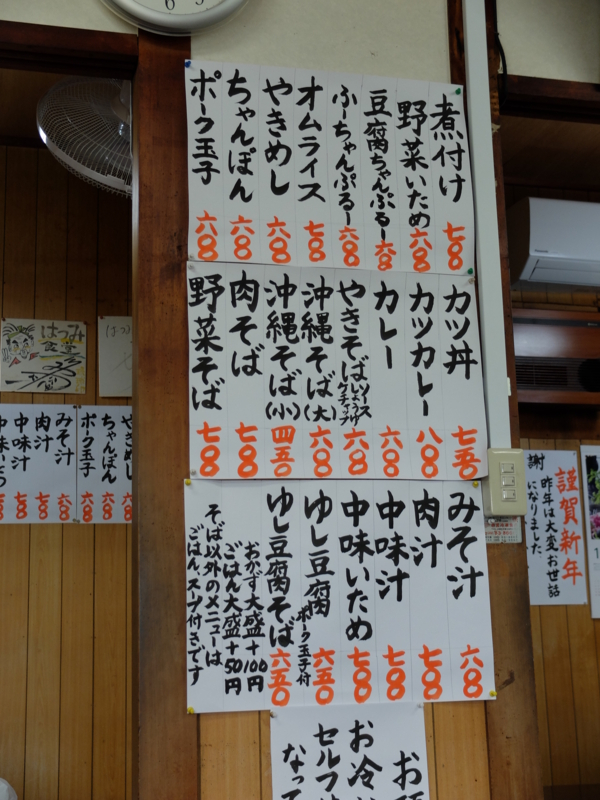 煮付け 七〇〇
野菜いため 六〇〇
豆腐ちゃんぷるー 六〇〇
ふーちゃんぷるー 六〇〇
オムライス 七〇〇
やきめし 六〇〇
ちゃんぽん 六〇〇
ポーク玉子 六〇〇
カツ丼 七五〇
カツカレー 八〇〇
カレー 六〇〇
やきそば ソース しょうゆ ケチャップ 六〇〇
沖縄そば(大) 六〇〇
沖縄そば(小) 四五〇
肉そば 七〇〇
野菜そば 七〇〇
みそ汁 六〇〇
肉汁 七〇〇
中味汁 七〇〇
中味いため 七〇〇
ゆし豆腐 ポーク玉子付 六五〇
ゆし豆腐そば 六五〇
おかず大盛+100円
ごはん大盛+50円
そば以外のメニューは
ごはん、スープ付きです
お冷
セルフ
なって
謹賀新年
昨年は大変お世話
になりました
謝
やきめし 六〇〇
ちゃんぽん 六〇〇
ポーク玉子 六〇〇
みそ汁 六〇〇
肉汁 七〇〇
中味汁 七〇〇
はつみ
食堂
はつみ